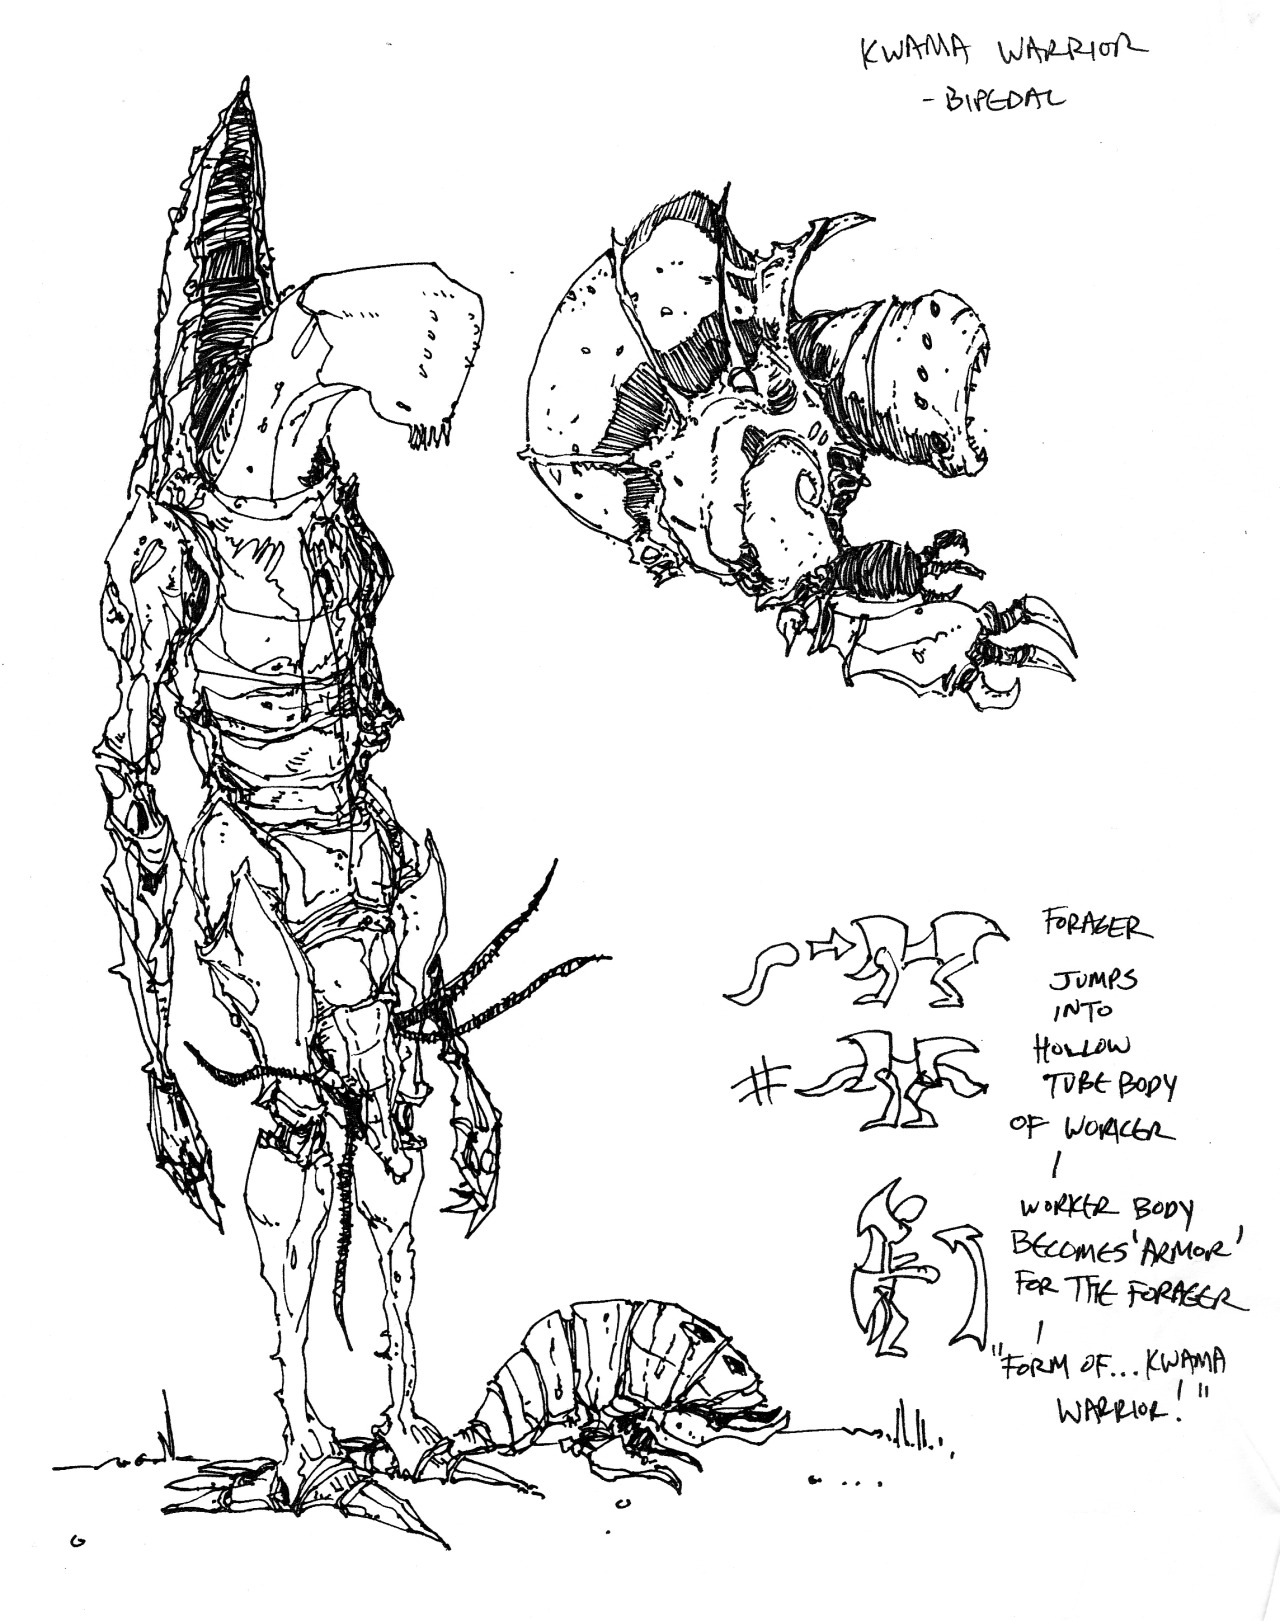 KWAMA WARRIOR
- BIPEDAL
FORAGER
JUMPS
INTO
HOLLOW
TUBE BODY
OF WORKER
WORKER BODY
BECOMES 'ARMOR'
FOR THE FORAGER
"FORM OF... KWAMA
WARRIOR!"